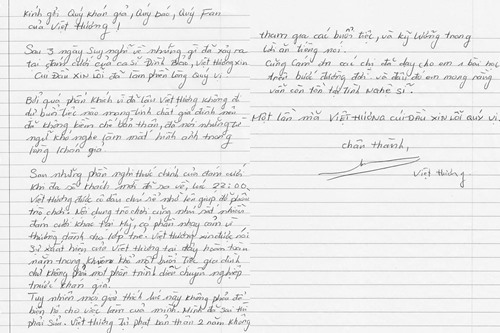 Kính gửi Quý khán giả, Quý báo, Quý Fan
của Việt Hương!
Sau 3 ngày suy nghĩ về những gì đã xảy ra
tại đám cưới của ca sĩ Đinh Bảo, Việt Hương xin
cúi Đầu XIN LỖI đã làm phiền lòng quý vị.
Bởi quá phấn khích vì đã lâu Việt Hương không đi
dự buổi tiệc nào mang tính chất gia đình nên
đã không kềm chế bản thân, đã nói những từ
ngữ khó nghe làm mất hình ảnh trong
lòng khán giả
Sau những phần nghi thức chính của đám cưới
Khi đa số khách mời đã ra về, lúc 22:00,
Việt Hương được cô dâu chú rể nhờ lên giúp để phần
trò chơi. Nội dung trò chơi cũng như rất nhiều
đám cưới khác tại Mỹ, có phần nhạy cảm vì
thường dành cho lớp trẻ. Việt Hương xin được nói
Sự xuất hiện của Việt Hương tại đây hoàn toàn
nằm trong khuôn khổ một buổi tiệc gia đình
chứ không phải một phần trình diễn chuyên nghiệp
trước khán giả.
Tuy nhiên mọi giải thích lúc này không phải để
biện hộ cho việc làm của mình. Mình đã sai thì
phải sửa. Việt Hương tự phạt bản thân 2 năm không
tham gia các buổi tiệc, và kỹ lưỡng trong
lời ăn tiếng nói.
Cũng cảm ơn các chị đã dạy cho em 1 bài học
trên bước đường đời và điều đó em mong rằng
vẫn còn tồn tại tình nghệ sĩ.
Một lần nữa VIỆT HƯƠNG CÚI ĐẦU XIN LỖI QUÝ VỊ.
chân thành,
Việt Hương